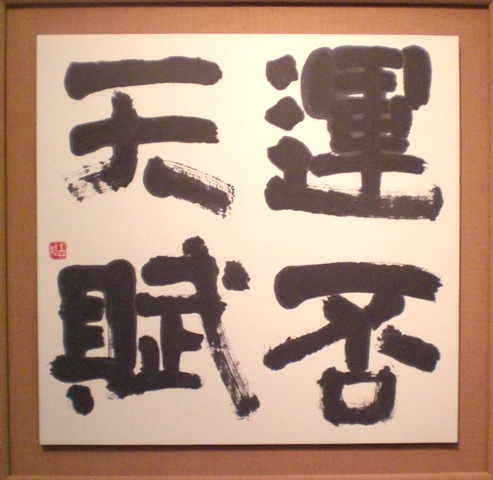 運否
天賦